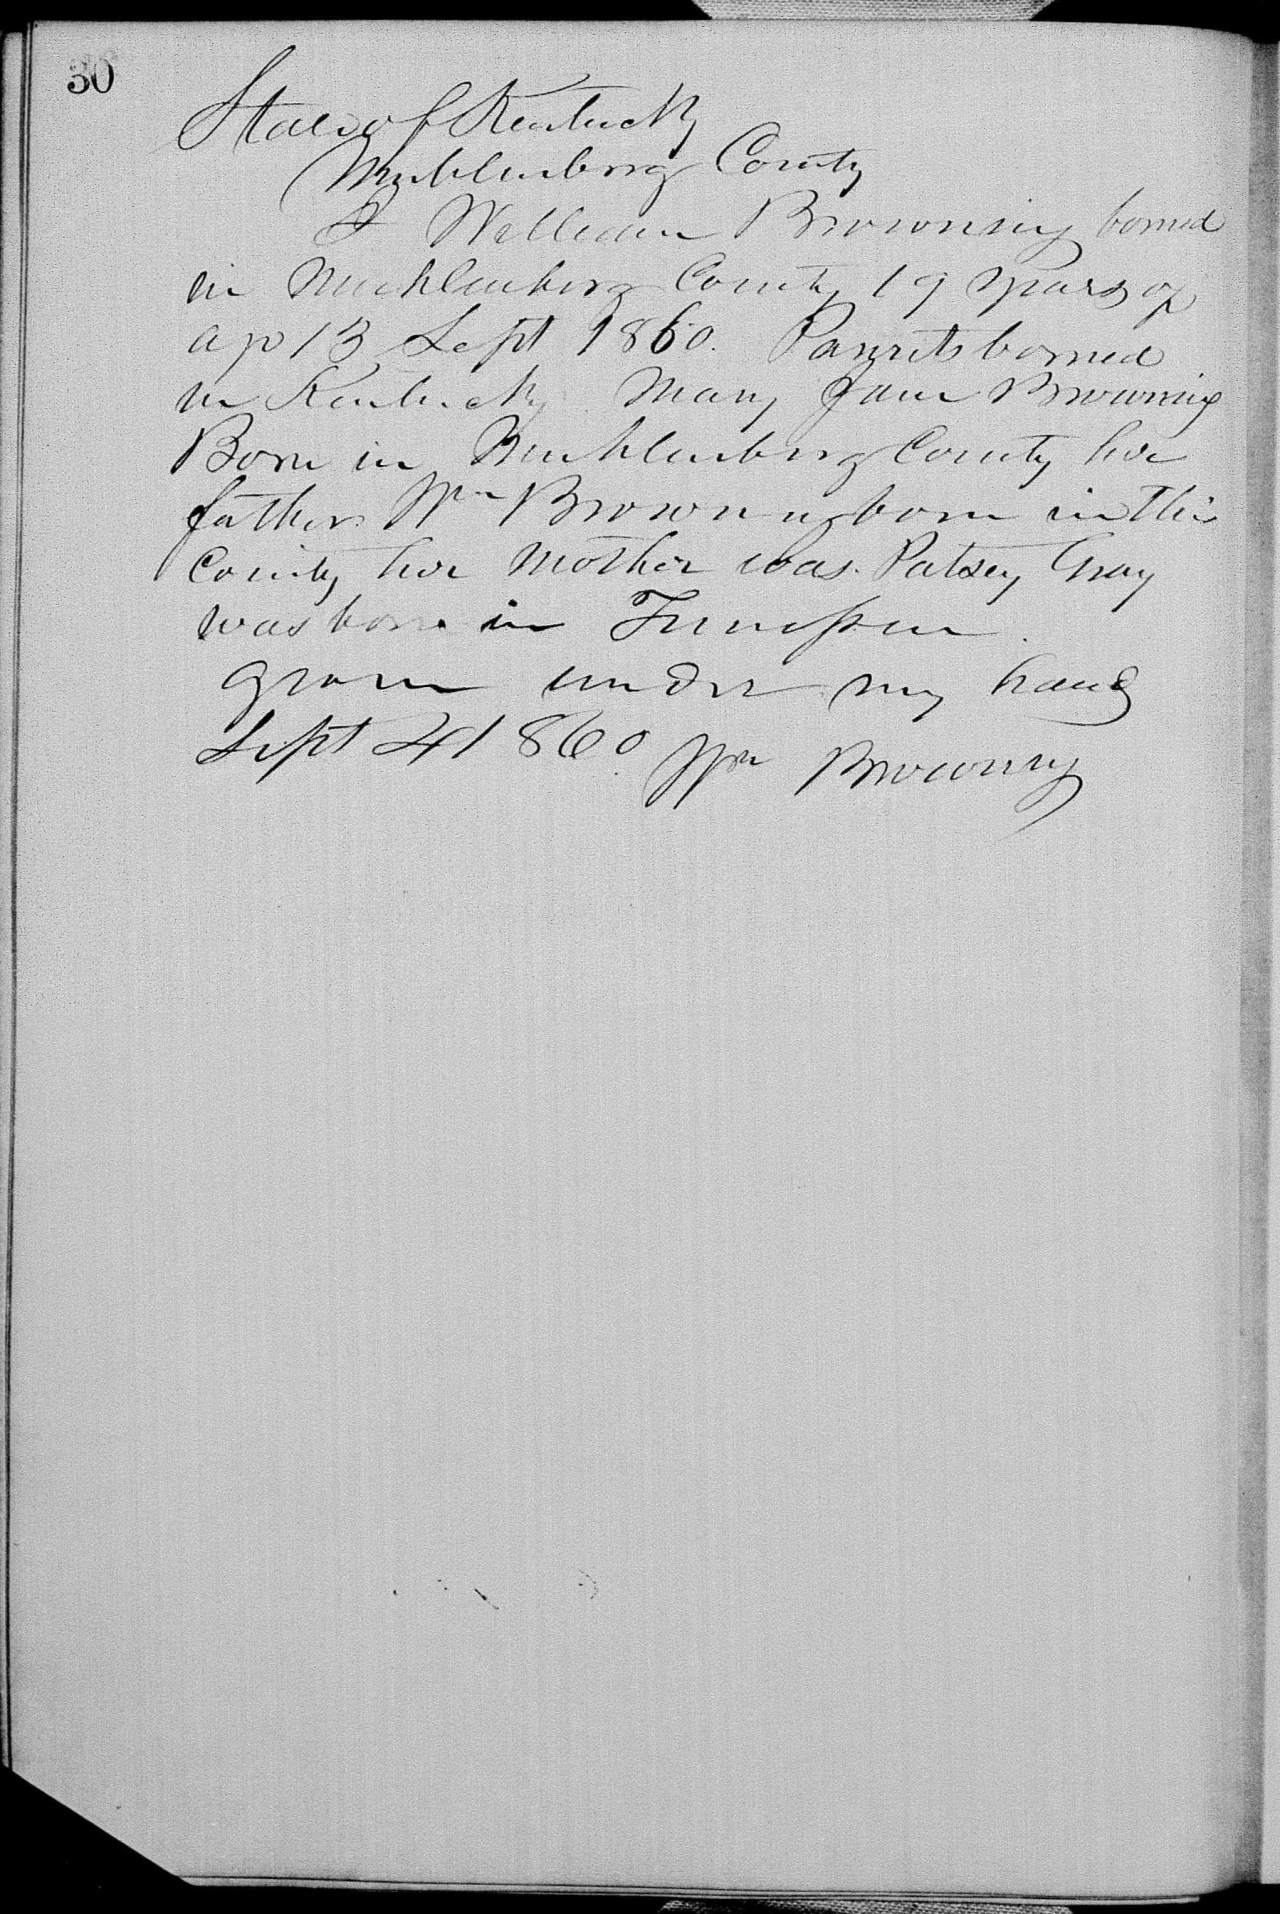 30
State of Kentucky
Muhlenberg County
I William Browning borned
in Muhlenberg County 19 years of
age 13 Sept 1860. Parents borned
in Kentucky Mary Jane Browning
Born in Muhlenberg County her
father Wm Browning born in this
County her Mother was Patsey Gray
was born in Tennessee
given under my hand
Sept 4 1860 Wm Browning